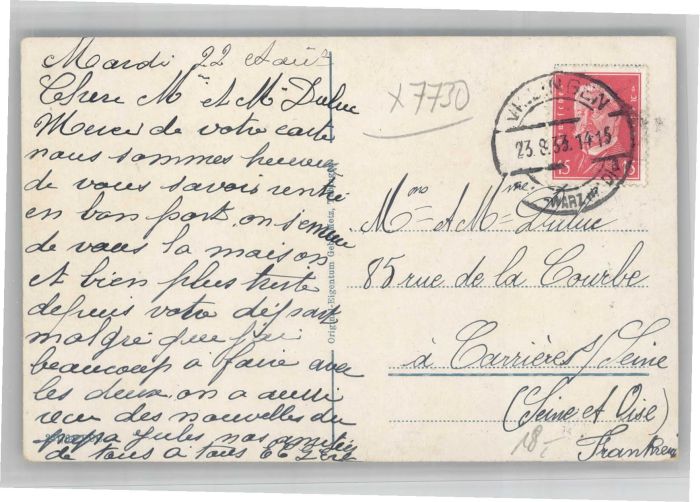 Mardi 22 Août
Chere Mme et Mr Duluc
Merci de votre carte
nous sommes heureux
de vous savoir rentré
en bon port, on s'ennuie
de vous la maison
et bien plus triste
depuis votre départ
malgré que j'ai
beaucoup a faire avec
les deux, on a aussi
recu des nouvelles du
papa Jules nos amitiés
de tous a tous
x7730
VILLINGEN
23.8.33.14-15
SCHWARZW
15
15
Mons et Mme Duluc
85 rue de la Courbe
à Carrières s/Seine
(Seine et Oise)
Frankrei
18.-
Original-Eigentum Gebr. Metz, Tübingen